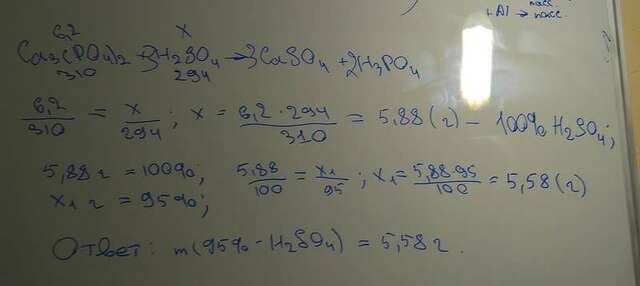 насс.
+Al → насс.
6,2 x
Ca3(PO4)2 + 3H2SO4 → 3CaSO4 + 2H3PO4
310 294
6,2/310 = x/294; x = 6,2·294/310 = 5,88 (г) – 100% H2SO4;
5,88 г = 100%; 5,88/100 = x1/95; x1 = 5,88·95/100 = 5,58 (г)
x1 г = 95%;
Ответ: m(95% - H2SO4) = 5,58 г.